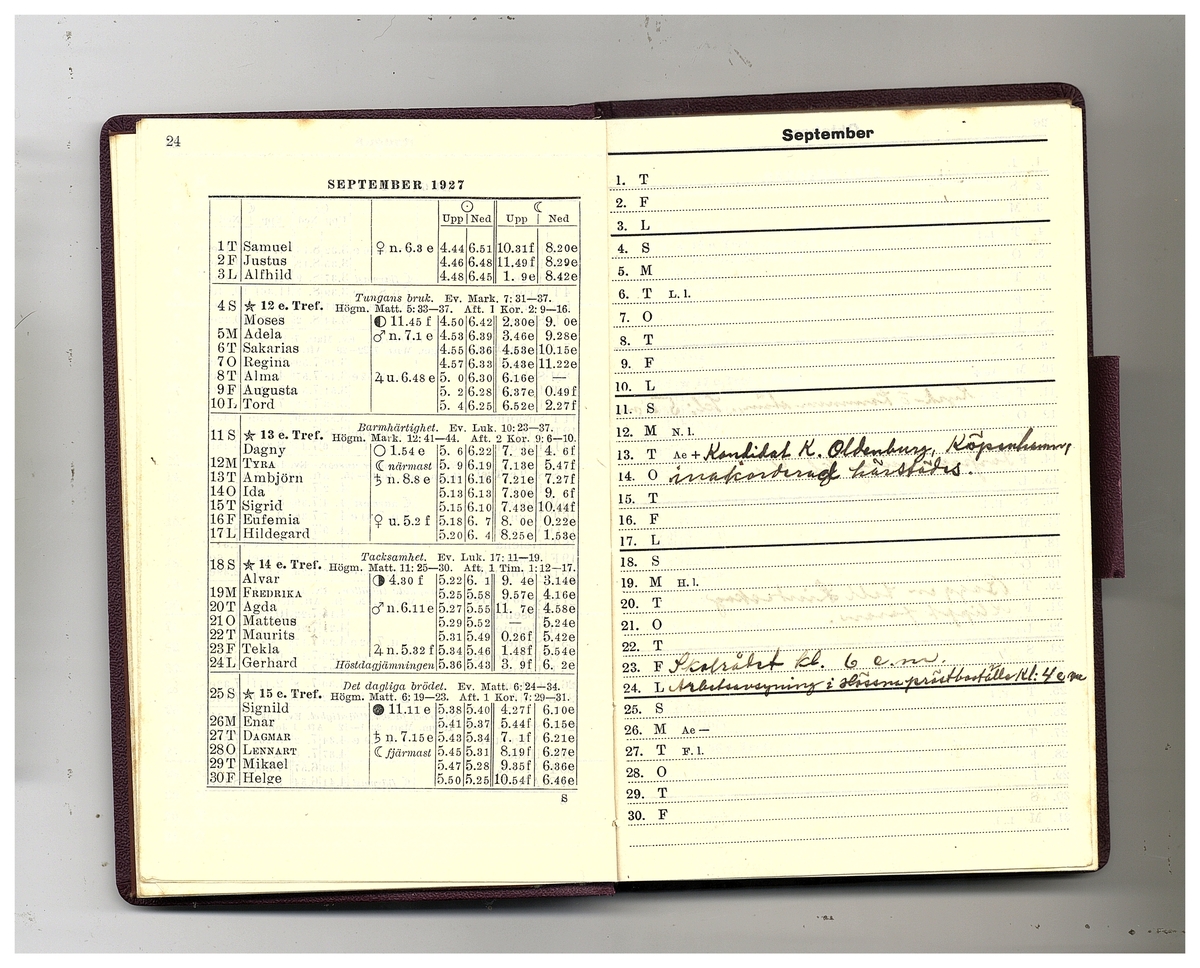 24
SEPTEMBER 1927
☉ ☾
Upp Ned Upp Ned
1 T Samuel ♀ n. 6.3 e 4.44 6.51 10.31f 8.20e
2 F Justus 4.46 6.48 11.49f 8.29e
3 L Alfhild 4.48 6.45 1. 9e 8.42e
Tungans bruk. Ev. Mark. 7: 31—37.
4 S ★ 12 e. Tref. Högm. Matt. 5: 33—37. Aft. 1 Kor. 2: 9—16.
Moses ◐ 11.45 f 4.50 6.42 2.30e 9. 0e
5 M Adela ♂ n. 7.1 e 4.53 6.39 3.46e 9.28e
6 T Sakarias 4.55 6.36 4.53e 10.15e
7 O Regina 4.57 6.33 5.43e 11.22e
8 T Alma ♃ u. 6.48 e 5. 0 6.30 6.16e —
9 F Augusta 5. 2 6.28 6.37e 0.49f
10 L Tord 5. 4 6.25 6.52e 2.27f
Barmhärtighet. Ev. Luk. 10: 23—37.
11 S ★ 13 e. Tref. Högm. Mark. 12: 41—44. Aft. 2 Kor. 9: 6—10.
Dagny ○ 1.54 e 5. 6 6.22 7. 3e 4. 6f
12 M TYRA ☾ närmast 5. 9 6.19 7.13e 5.47f
13 T Ambjörn ♄ n. 8.8 e 5.11 6.16 7.21e 7.27f
14 O Ida 5.13 6.13 7.30e 9. 6f
15 T Sigrid 5.15 6.10 7.43e 10.44f
16 F Eufemia ♀ u. 5.2 f 5.18 6. 7 8. 0e 0.22e
17 L Hildegard 5.20 6. 4 8.25e 1.53e
Tacksamhet. Ev. Luk. 17: 11—19.
18 S ★ 14 e. Tref. Högm. Matt. 11: 25—30. Aft. 1 Tim. 1: 12—17.
Alvar ◑ 4.30 f 5.22 6. 1 9. 4e 3.14e
19 M FREDRIKA 5.25 5.58 9.57e 4.16e
20 T Agda ♂ n. 6.11 e 5.27 5.55 11. 7e 4.58e
21 O Matteus 5.29 5.52 — 5.24e
22 T Maurits 5.31 5.49 0.26f 5.42e
23 F Tekla ♃ n. 5.32 f 5.34 5.46 1.48f 5.54e
24 L Gerhard Höstdagjämningen 5.36 5.43 3. 9f 6. 2e
Det dagliga brödet. Ev. Matt. 6: 24—34.
25 S ★ 15 e. Tref. Högm. Matt. 6: 19—23. Aft. 1 Kor. 7: 29—31.
Signild ● 11.11 e 5.38 5.40 4.27f 6.10e
26 M Enar 5.41 5.37 5.44f 6.15e
27 T DAGMAR ♄ n. 7.15 e 5.43 5.34 7. 1f 6.21e
28 O LENNART ☾ fjärmast 5.45 5.31 8.19f 6.27e
29 T Mikael 5.47 5.28 9.35f 6.36e
30 F Helge 5.50 5.25 10.54f 6.46e
S
September
1. T
2. F
3. L
4. S
5. M
6. T L. l.
7. O
8. T
9. F
10. L
11. S
12. M N. l.
13. T Ae + Kandidat K. Oldenburg, Köpenhamn,
14. O härstädes.
15. T
16. F
17. L
18. S
19. M H. l.
20. T
21. O
22. T
23. F Skolrådet kl. 6 e.m.
24. L Arbetsavsyning i Hössna prästboställe Kl: 4 e.m
25. S
26. M Ae —
27. T F. l.
28. O
29. T
30. F